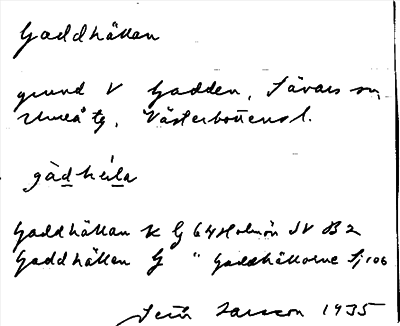 Gaddhällan
grund V Gadden, Sävars sn,
Umeå tg, Västerbottens l.
gàdhéla
Gaddhällan K G 64 Holmön SV B 2
Gaddhällen G " Gaddhällorne Sj 106
Larsson 1935